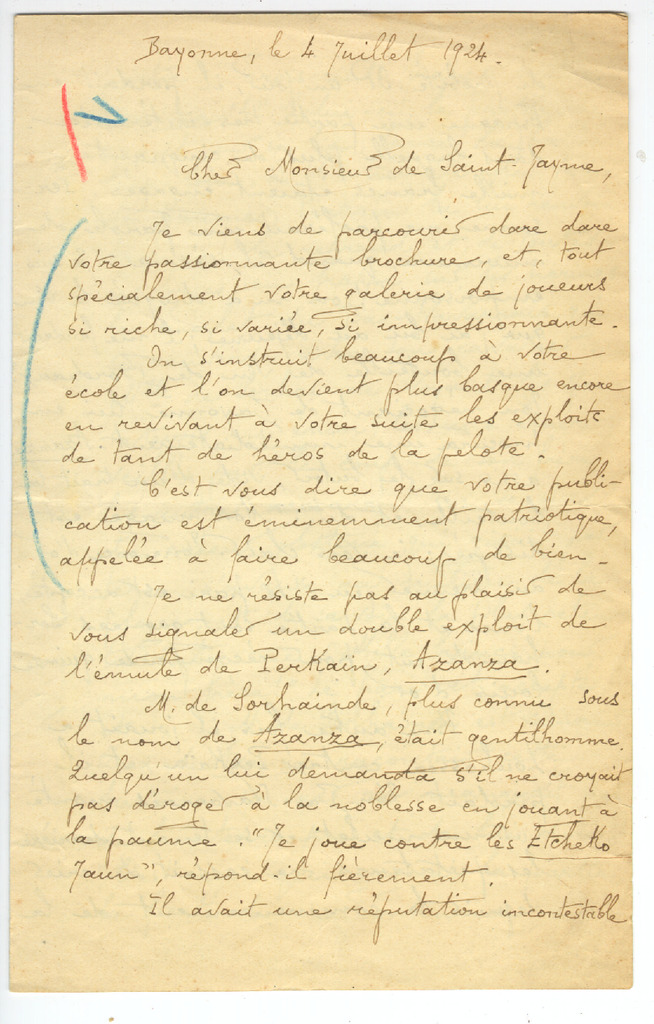 Bayonne, le 4 Juillet 1924.
Cher Monsieur de Saint-Jayme,
Je viens de parcourir dare dare
votre passionnante brochure, et, tout
spécialement votre galerie de joueurs
si riche, si variée, si impressionnante.
On s'instruit beaucoup à votre
école et l'on devient plus basque encore
en revivant à votre suite les exploits
de tant de héros de la pelote.
C'est vous dire que votre publi-
cation est éminemment patriotique,
appelée à faire beaucoup de bien.
Je ne résiste pas au plaisir de
vous signaler un double exploit de
l'émule de Perkaïn, Azanza.
M. de Sorhainde, plus connu sous
le nom de Azanza, était gentilhomme.
Quelqu'un lui demanda s'il ne croyait
pas déroger à la noblesse en jouant à
la paume. "Je joue contre les Etcheko
Jaun", répond-il fièrement.
Il avait une réputation incontestable